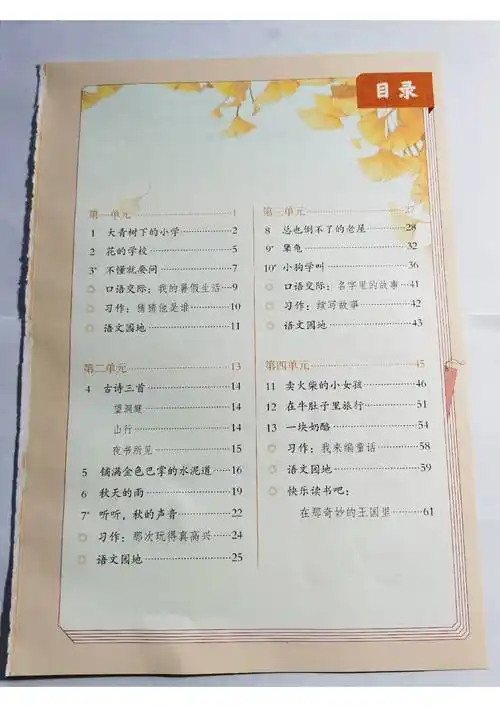 目录
第一单元 1
1 大青树下的小学 2
2 花的学校 5
3* 不懂就要问 7
口语交际：我的暑假生活 9
习作：猜猜他是谁 10
语文园地 11
第二单元 13
4 古诗三首 14
望洞庭 14
山行 14
夜书所见 15
5 铺满金色巴掌的水泥道 16
6 秋天的雨 19
7* 听听，秋的声音 22
习作：那次玩得真高兴 24
语文园地 25
第三单元 27
8 总也倒不了的老屋 28
9* 犟龟 32
10* 小狗学叫 36
口语交际：名字里的故事 41
习作：续写故事 42
语文园地 43
第四单元 45
11 卖火柴的小女孩 46
12 在牛肚子里旅行 51
13 一块奶酪 54
习作：我来编童话 58
语文园地 59
快乐读书吧：
在那奇妙的王国里 61